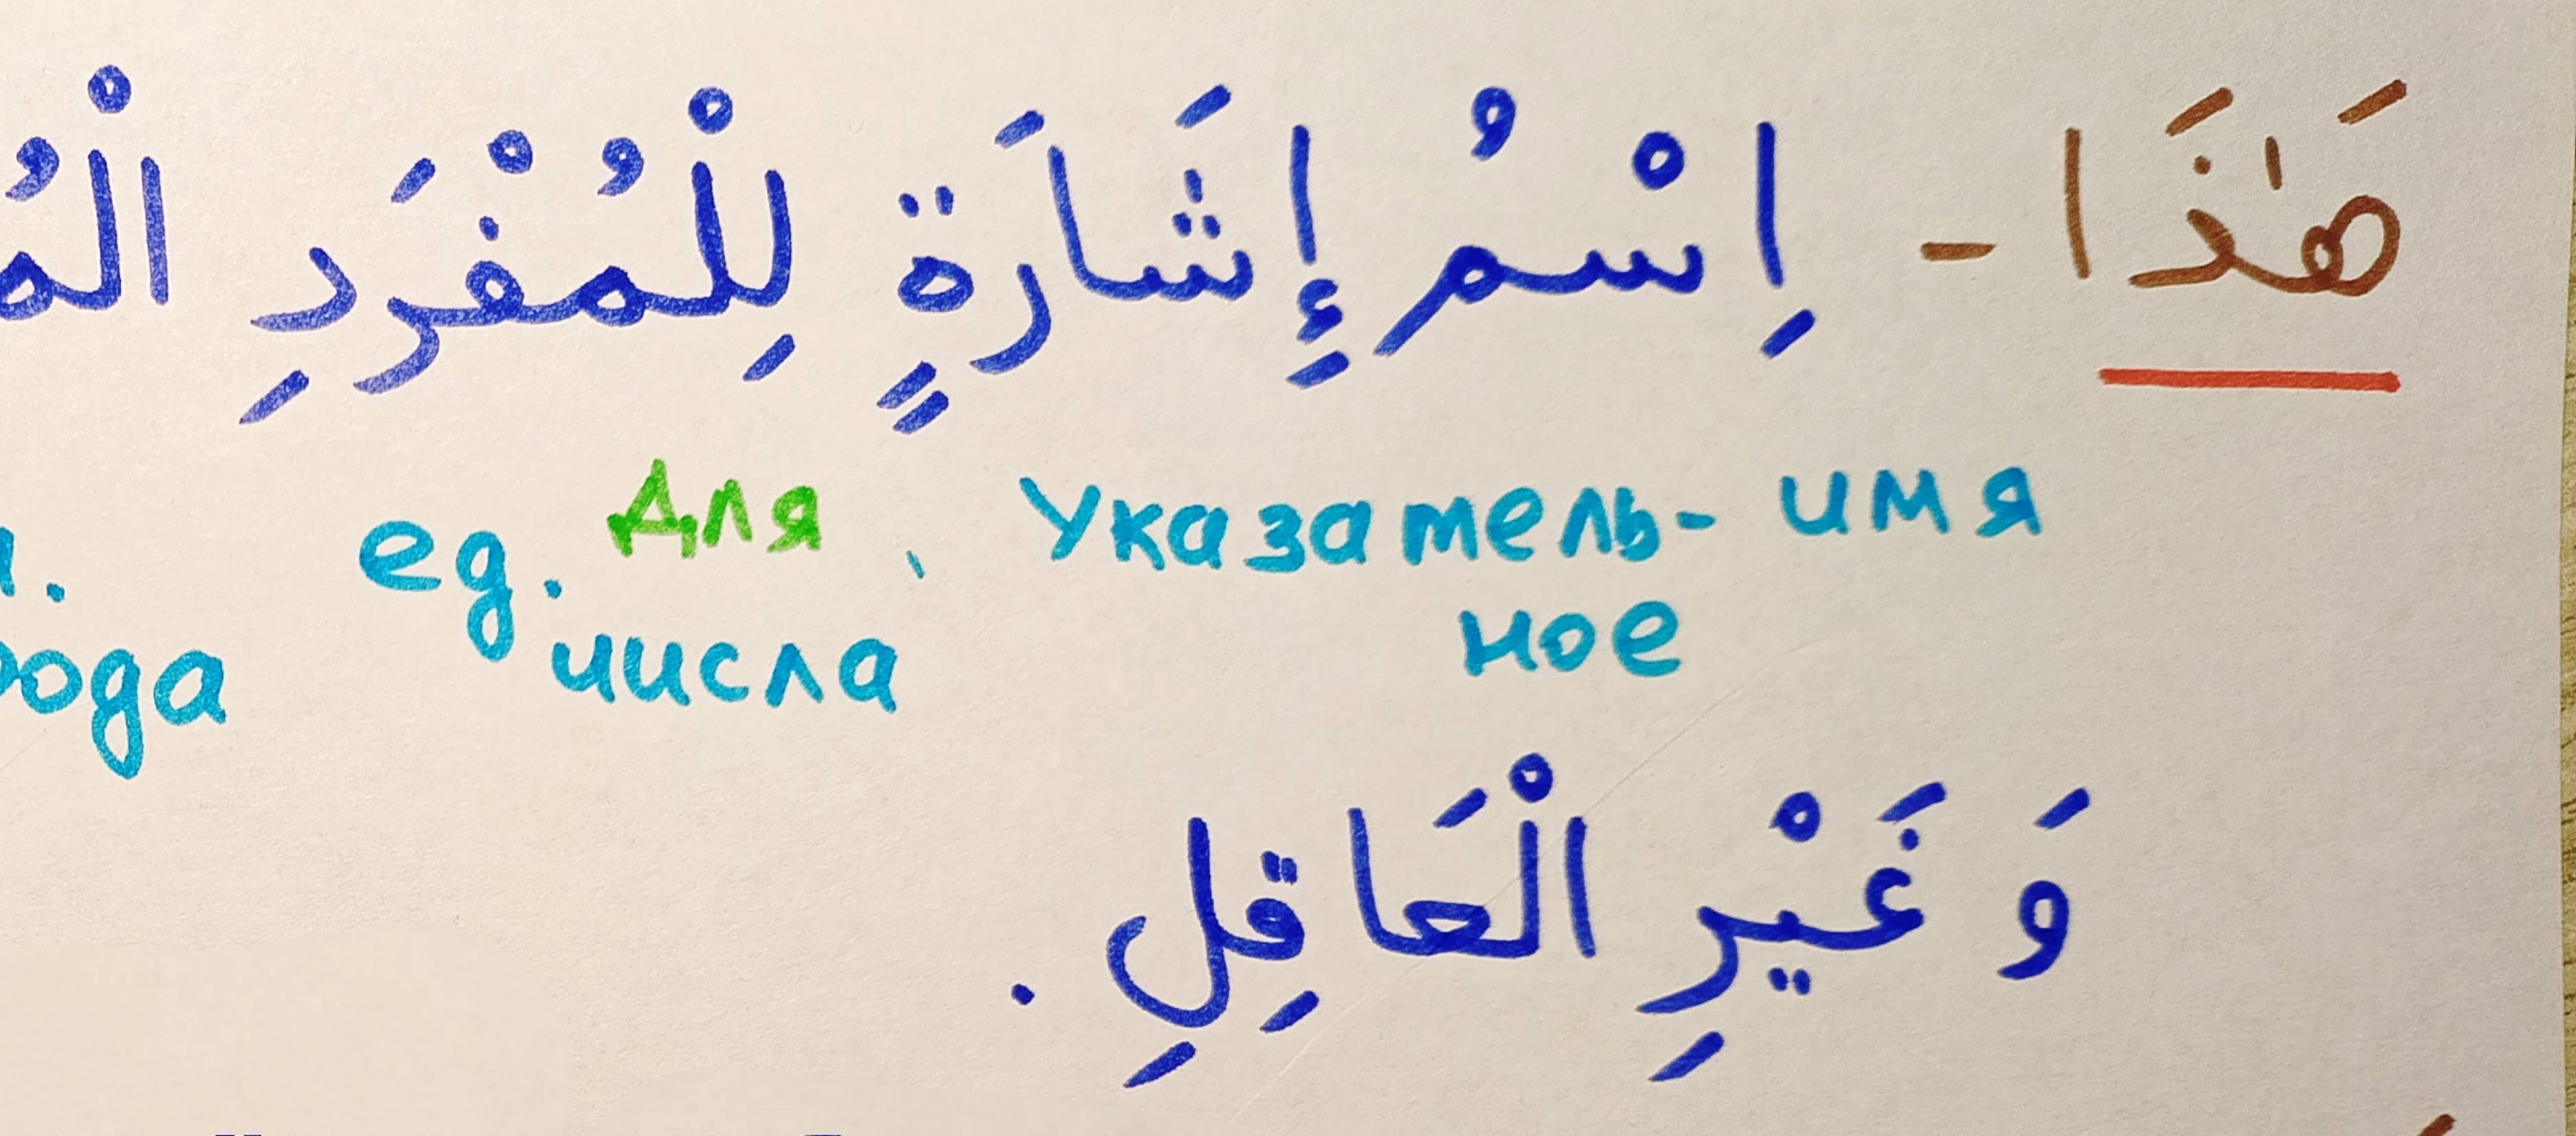 هَٰذَا - اِسْمُ إِشَارَةٍ لِلْمُفْرَدِ
имя указатель- для ед.
ное числа
وَ غَيْرِ الْعَاقِلِ .